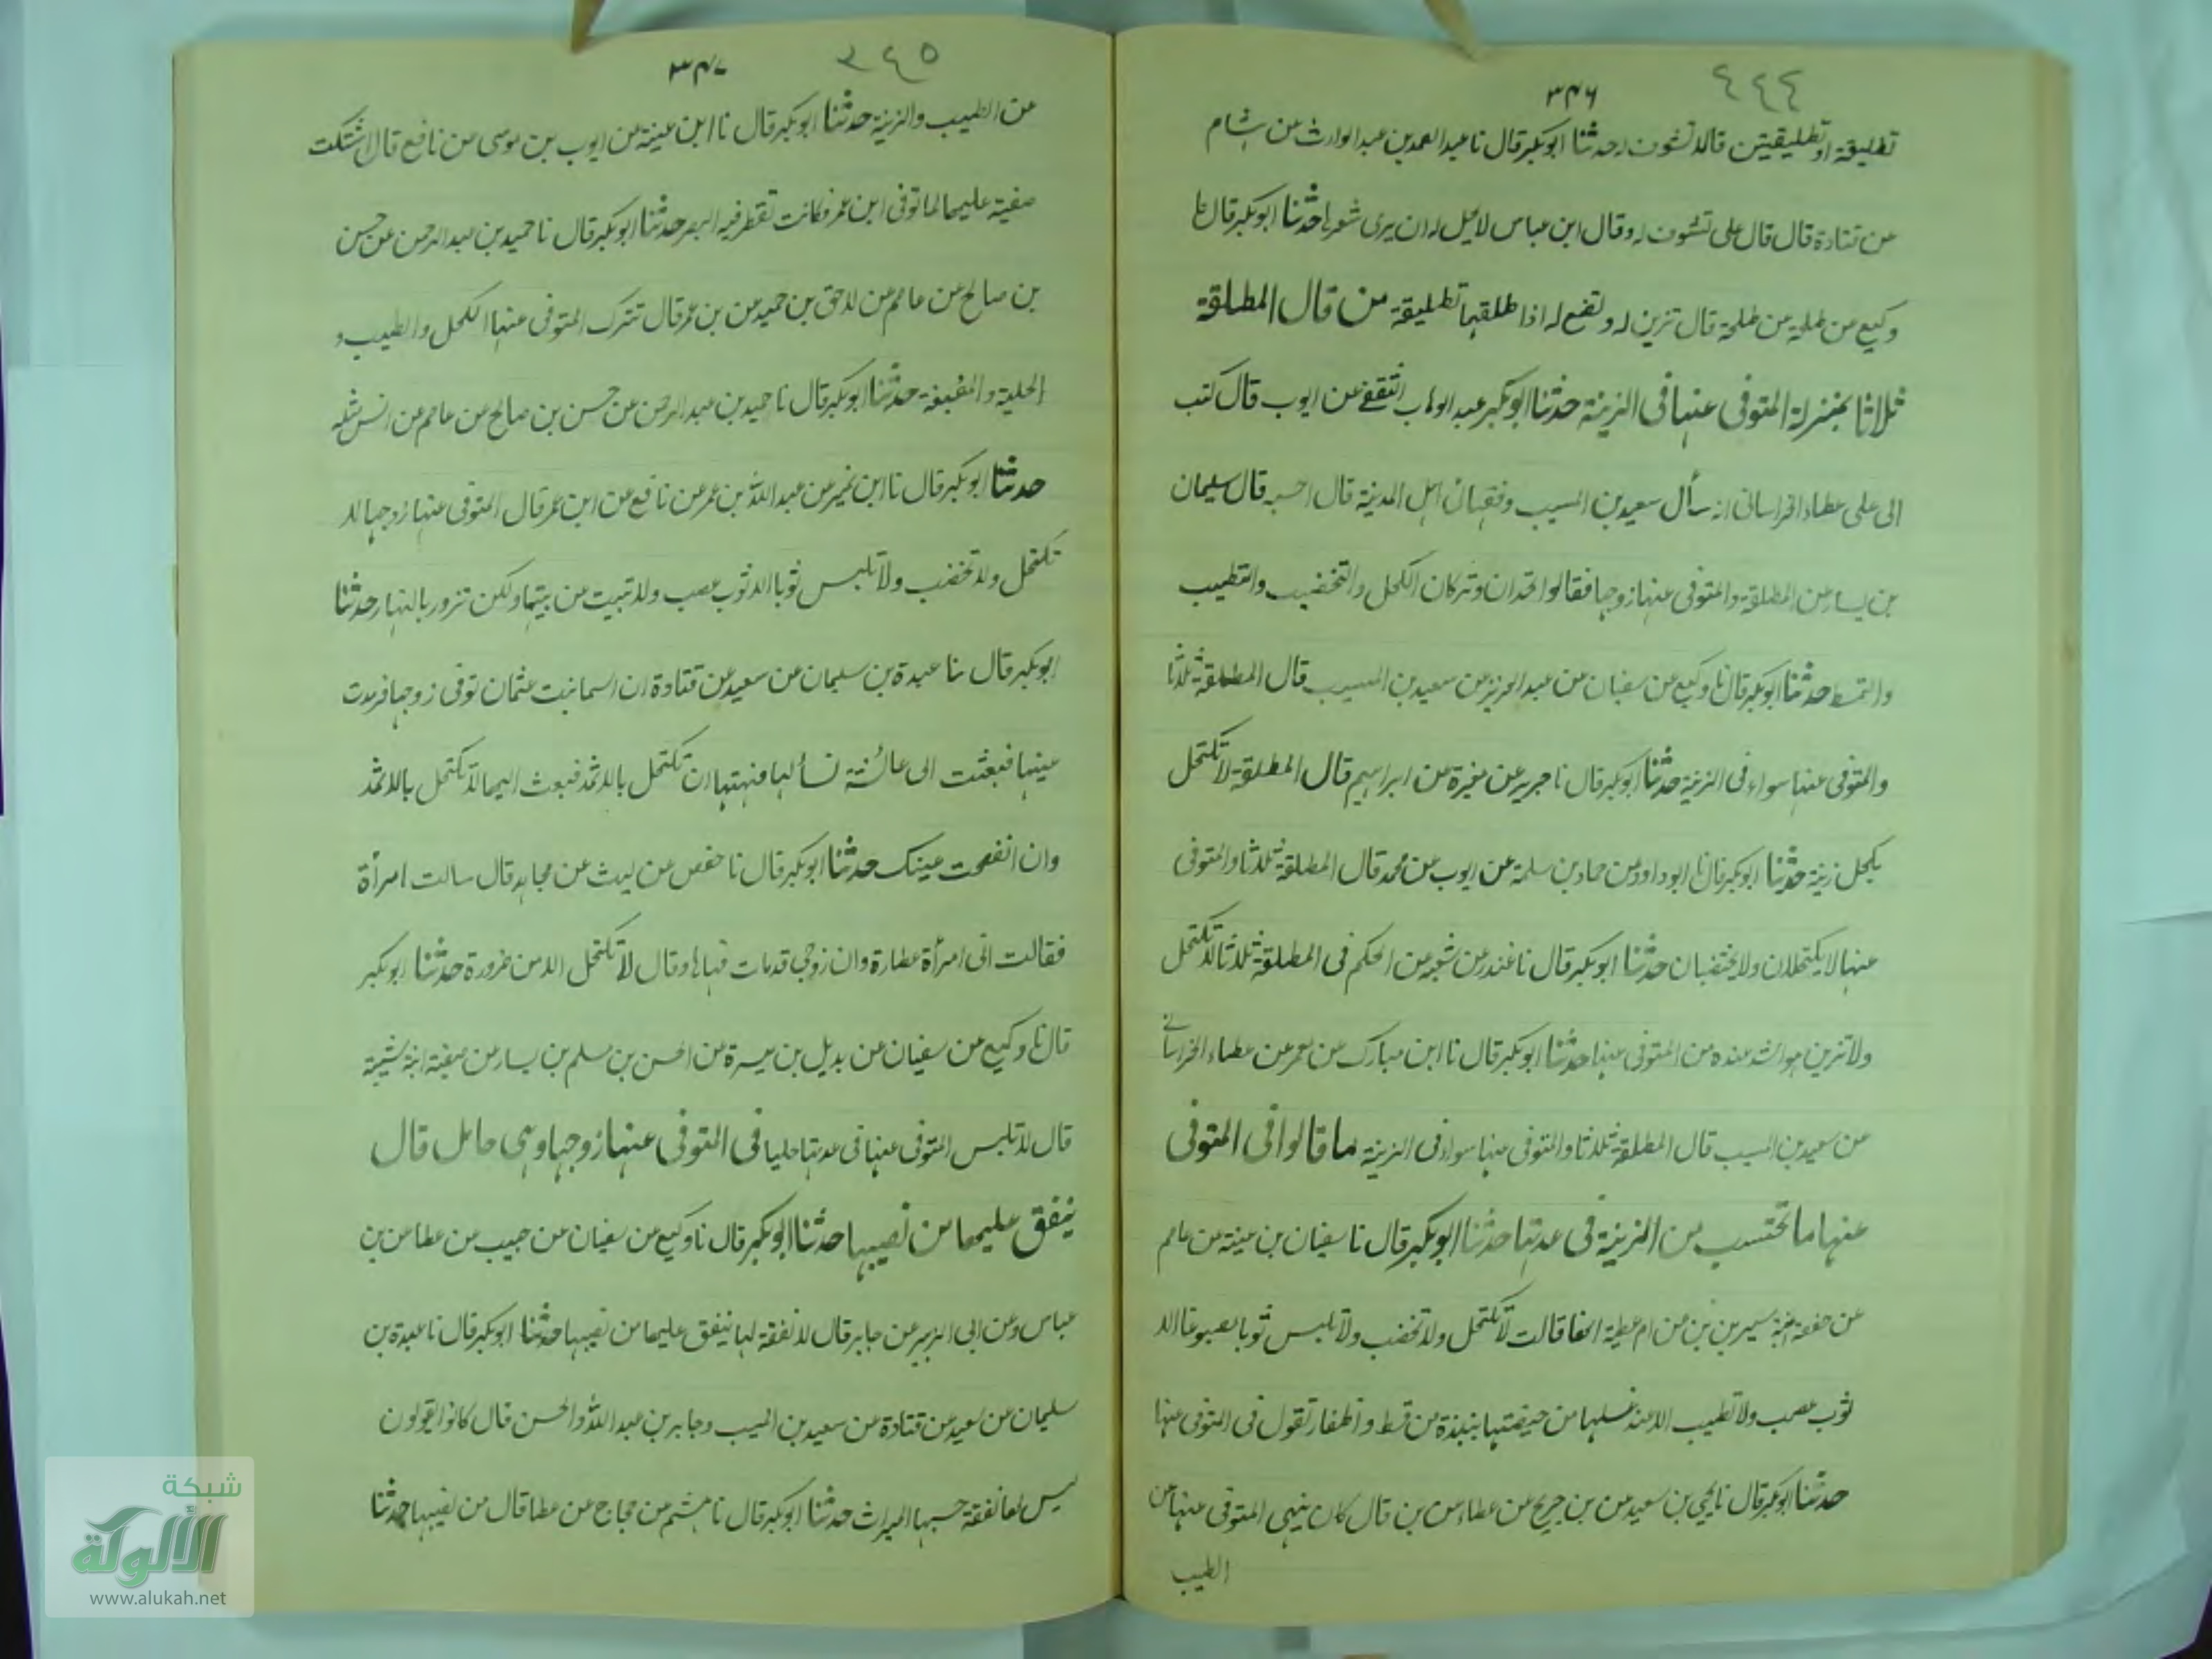 ٤٤٤
٣٤٦
تطليقة او تطليقتين قال لا تشوف له حدثنا ابوبكر قال نا عبد الصمد بن عبد الوارث عن هشام
عن قتادة قال قال على تشوف له وقال ابن عباس لا يحل له ان يرى شعرها حدثنا ابوبكر قال نا
وكيع عن طلحة من طلحة قال تزين له وتضع له اذا طلقها تطليقة من قال المطلقة
ثلاثا بمنزلة المتوفى عنها فى الزينة حدثنا ابوبكر عبد الوهاب الثقفى عن ايوب قال كتب
الى على عطاء الخراسانى انه سأل سعيد بن المسيب وفقهائ اهل المدينة قال احسبه قال سليمان
بن يسار عن المطلقة والمتوفى عنها زوجها فقالوا تحدان وتتركان الكحل والتخضيب والتطيب
والتمسط حدثنا ابوبكر قال نا وكيع عن سفيان عن عبد العزيز عن سعيد بن المسيب قال المطلقة ثلاثا
والمتوفى عنها سواء فى الزينة حدثنا ابوبكر قال نا جرير عن مغيرة عن ابراهيم قال المطلقة لا تكتحل
بكحل زينة حدثنا ابوبكر قال نا ابو داود عن حماد بن سلمة عن ايوب عن محمد قال المطلقة ثلاثا والمتوفى
عنها لا يكتحلان ولا يختضبان حدثنا ابوبكر قال نا غندر عن شعبه عن الحكم فى المطلقة ثلاثا لا تكتحل
ولا تزين هو اشد عنده من المتوفى عنها حدثنا ابوبكر قال نا ابن مبارك عن معمر عن عطاء الخراسانى
عن سعيد بن المسيب قال المطلقة ثلاثا والمتوفى عنها سواء فى الزينة ما قالوا فى المتوفى
عنها ما تجتنب من الزينة فى عدتها حدثنا ابوبكر قال نا سفيان بن عينة عن عاصم
عن حفصة ابنة سيرين عن ام عطية انها قالت لا تكتحل ولا تخضب ولا تلبس ثوبا مصبوغا الا
ثوب عصب ولا تطيب الا عند غسلها من حيضتها بنبذة من قسط و اظفار تقول فى المتوفى عنها
حدثنا ابوبكر قال نا يحيى بن سعيد عن بن جريج عن عطاء عن بن قال كان ينهى المتوفى عنها عن
الطيب
٣٤٥
٣٤٧
عن الطيب والزينة حدثنا ابوبكر قال نا ابن عينة عن ايوب بن موسى عن نافع قال اشتكت
صفية عليها لما توفى ابن عمر فكانت تقطر فيه الصبر حدثنا ابوبكر قال نا حميد بن عبد الرحمن عن حسن
بن صالح عن عاصم عن لاحق بن حميد عن بن عمر قال تترك المتوفى عنها الكحل والطيب و
الحلية و المصبغة حدثنا ابوبكر قال نا حميد بن عبد الرحمن عن حسن بن صالح عن عاصم عن انس مثله
حدثنا ابوبكر قال نا ابن نمير عن عبد الله بن عمر عن نافع عن ابن عمر قال المتوفى عنها زوجها لا
تكتحل ولا تخضب ولا تلبس ثوبا الا ثوب عصب ولا تبيت عن بيتها ولكن تزور بالنهار حدثنا
ابوبكر قال نا عبدة بن سليمان عن سعيد عن قتادة ان اسما بنت عثمان توفى زوجها فرمدت
عينها فبعثت الى عائشة تسألها فنهتها ان تكتحل بالاثمد فبعث اليها لا تكتحل بالاثمد
وان انفضحت عينك حدثنا ابوبكر قال نا حفص عن ليث عن مجاهد قال سالت امرأة
فقالت انى امرأة عطارة وان زوجى قد مات فنهاها وقال لا تكتحل الا من ضرورة حدثنا ابوبكر
قال نا وكيع عن سفيان عن بديل بن ميسرة عن الحسن بن مسلم بن يسار عن صفية ابنة شيبة
قال لا تلبس المتوفى عنها فى عدتها حليا فى المتوفى عنها زوجها وهى حامل قال
ينفق عليها من نصيبها حدثنا ابوبكر قال نا وكيع عن سفيان عن حبيب عن عطا عن بن
عباس وعن ابى الزبير عن جابر قال لا نفقة لها ينفق عليها من نصيبها حدثنا ابوبكر قال نا عبدة بن
سليمان عن سعيد عن قتادة عن سعيد بن المسيب وجابر بن عبد الله والحسن قال كانوا يقولون
ليس لها نفقة حسبها الميراث حدثنا ابوبكر قال نا هشيم عن حجاج عن عطا قال من نصيبها حدثنا
شبكة
الألوكة
www.alukah.net